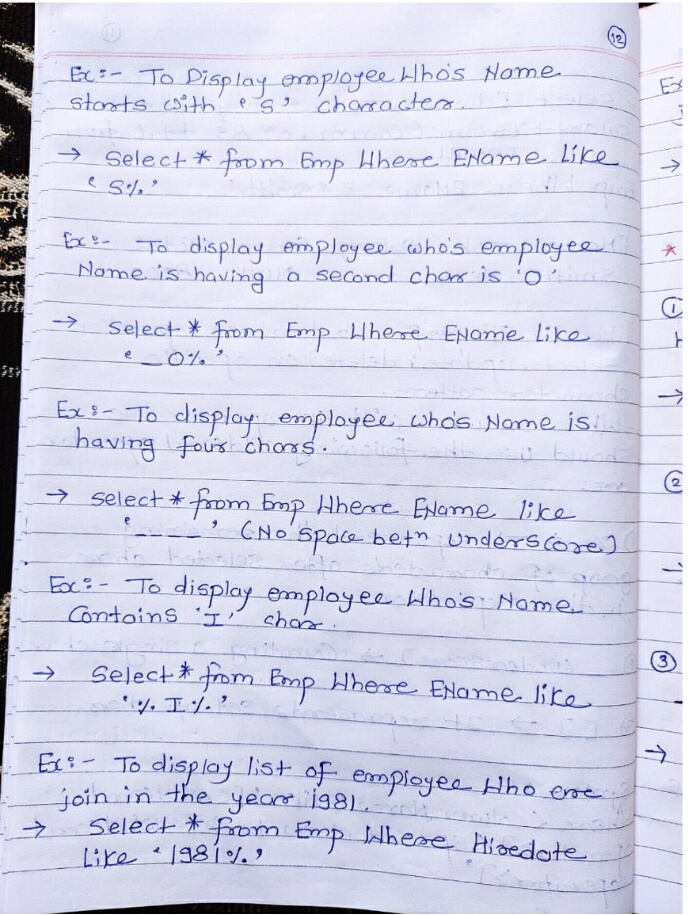 12
Ex:- To Display employee Who's Name
starts with 'S' character.
→ Select * from Emp Where EName Like
'S%'
Ex:- To display employee who's employee
Name is having a second char is 'O'
→ Select * from Emp Where EName Like
'_O%'
Ex:- To display employee who's Name is
having four chars.
→ select * from Emp Where EName like
'____' (No space betn underscore)
Ex:- To display employee Who's Name
Contains 'I' char.
→ Select * from Emp Where EName like
'%I%'
Ex:- To display list of employee Who ere
join in the year 1981.
→ Select * from Emp Where Hiredate
Like '1981%'
Ex
→
*
1
→
2
3
→